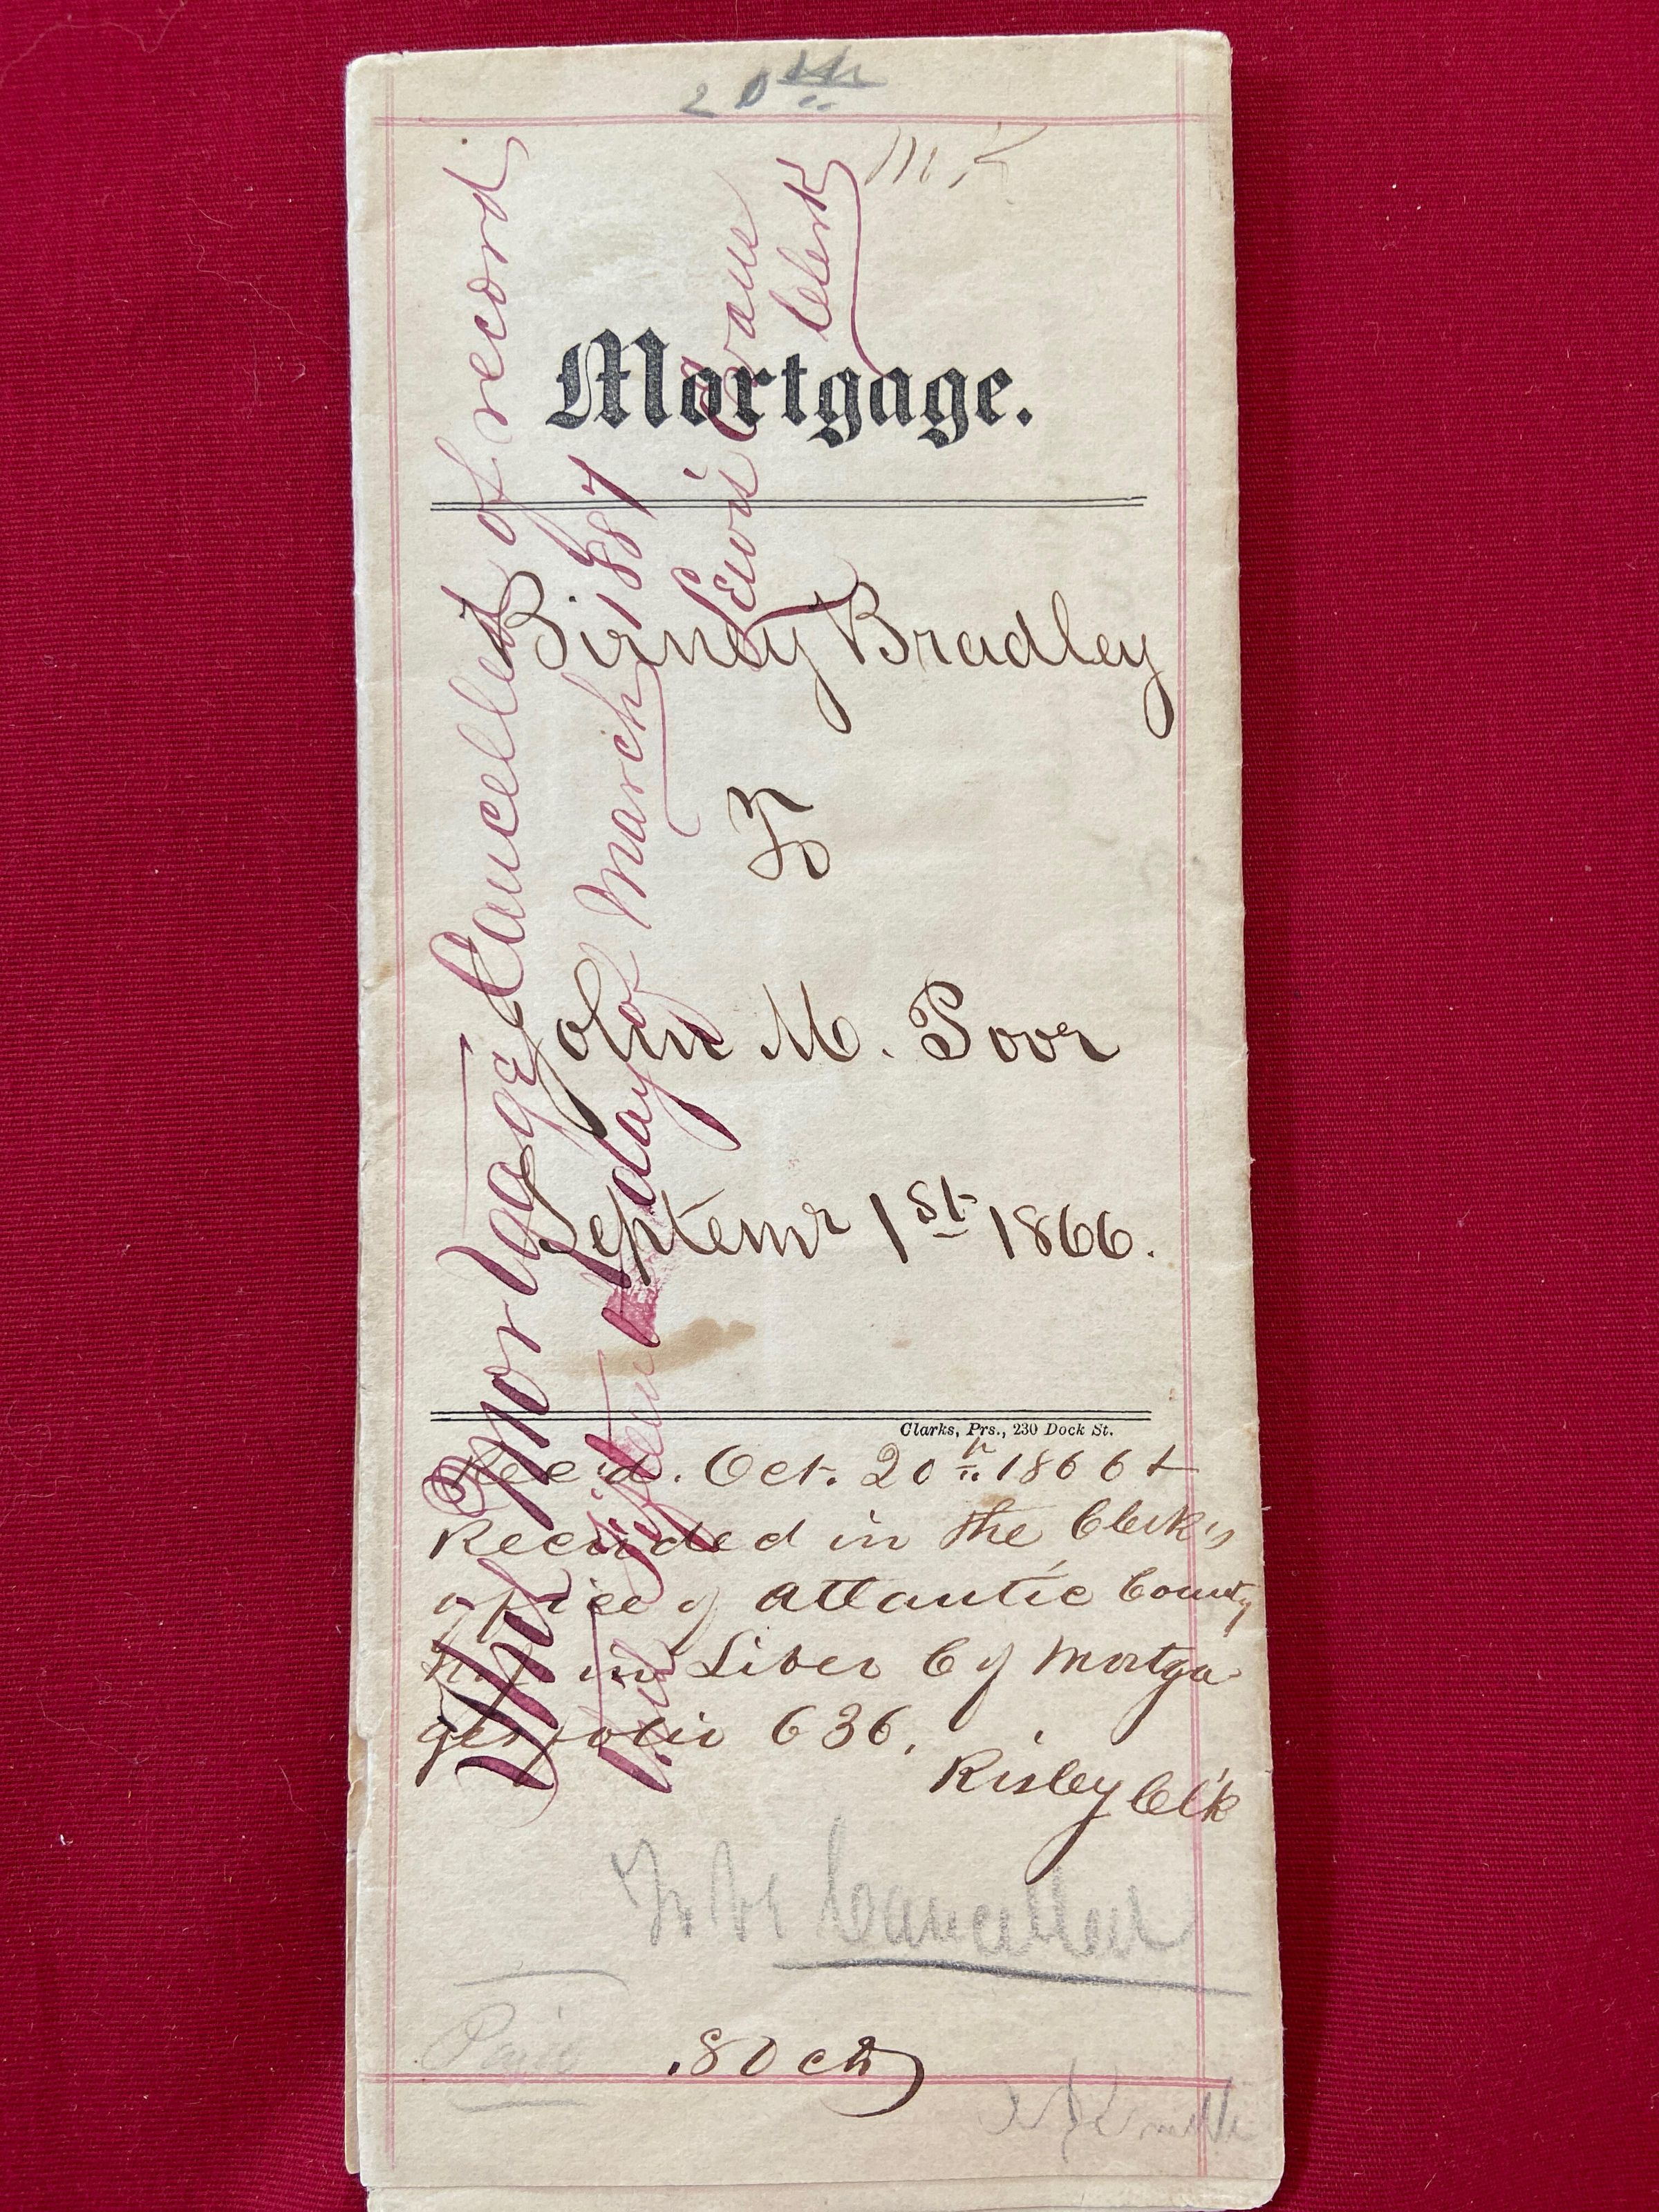 20th
Mortgage.
Birney Bradley
To
John M. Poor
Septemr 1st 1866.
Clarks, Prs., 230 Dock St.
Rec'd. Oct. 20th 1866 &
Recorded in the Clerk's
office of Atlantic County
in Liber C of Mortga
ges folio 636.
Risley Cl'k
To be Cancelled
Paid
.80 cts
This Mortgage Cancelled of record
this fifteenth day of March 1887
Lewis Evans
Clerk